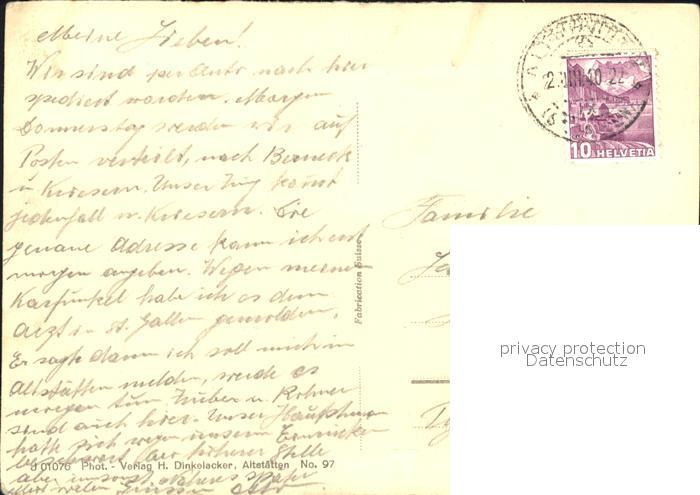 Meine Lieben!
Wir sind per Auto nach hier
spediert worden. Morgen
Donnerstag werden wir auf
Posten verteilt, nach Berneck
u. Kriesern. Unser Zug kommt
jedenfall n. Kriesern. Die
genaue Adresse kann ich erst
morgen angeben. Wegen meinen
Karfunkel habe ich es dem
Arzt in St. Gallen gemolden,
Er sagte dann ich soll mich in
Altstätten melden, werde es
morgen tun. Huber u. Rohner
sind auch hier. Unser Hauptmann
hatte sich wegen unserm Einrücken
beschwert bei höherer Stelle
aber umsonst. Näheres später
Grüsse
J 01076 Phot. - Verlag H. Dinkelacker, Altstätten No. 97
Fabrication Suisse
10 HELVETIA
Familie
privacy protection
Datenschutz